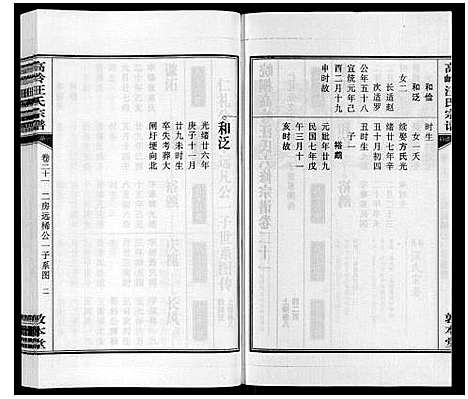 高岭汪氏宗谱
敦本堂
和俭
和泛
女二
长适赵
次适罗
公年五十八
宣统元年己
酉二月十九
申时故
时生
女一夭
续娶方氏光
绪廿七年辛
丑十月初四
丑时生
子一
裕鹉
元妣年廿九
民国七年戊
午三月十一
亥时故
和泛
光绪廿六年
庚子十一月
廿九未时生
卒失考葬大
闸圩埂向北
高岭汪氏宗谱
卷二十一
二房远桸公一子系图
二
敦本堂